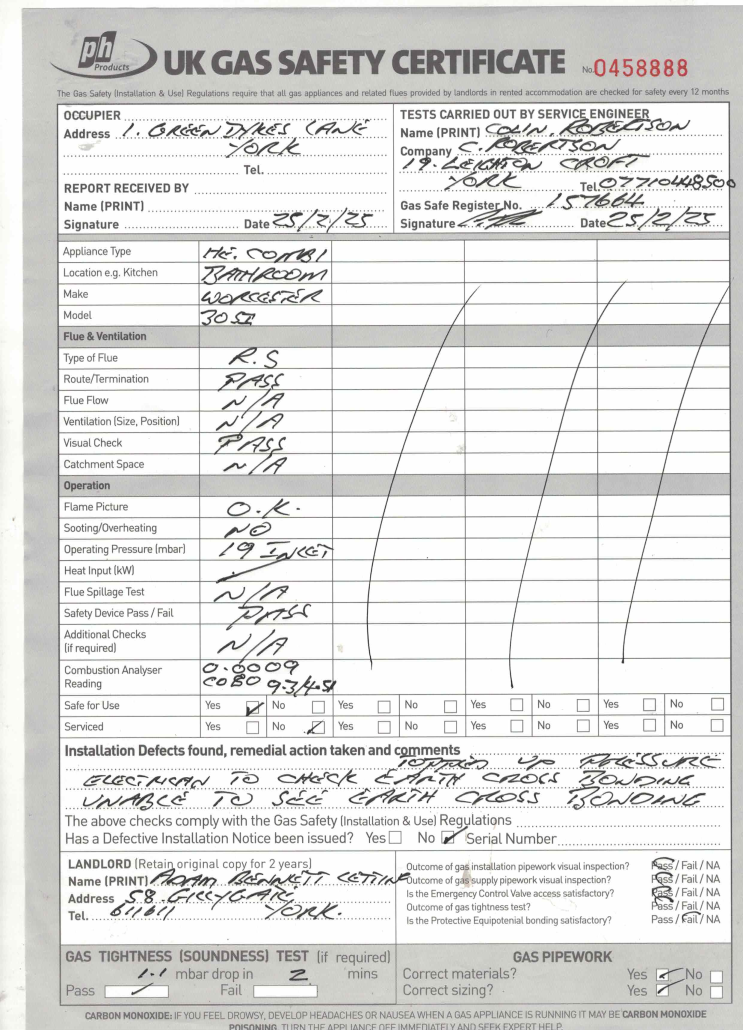 ph Products
UK GAS SAFETY CERTIFICATE No. 0458888
The Gas Safety (Installation & Use) Regulations require that all gas appliances and related flues provided by landlords in rented accommodation are checked for safety every 12 months
OCCUPIER
Address 1. GREEN DYKES LANE
YORK
Tel.
REPORT RECEIVED BY
Name (PRINT)
Signature Date 25/2/25
TESTS CARRIED OUT BY SERVICE ENGINEER
Name (PRINT) COLIN. ROBERTSON
Company C. ROBERTSON
19. LEIGHTON CROFT
YORK Tel. 07710448500
Gas Safe Register No. 157664
Signature Date 25/2/25
Appliance Type HE. COMBI
Location e.g. Kitchen BATHROOM
Make WORCESTER
Model 30SI
Flue & Ventilation
Type of Flue R.S
Route/Termination PASS
Flue Flow N/A
Ventilation (Size, Position) N/A
Visual Check PASS
Catchment Space N/A
Operation
Flame Picture O.K.
Sooting/Overheating NO
Operating Pressure (mbar) 19 INLET
Heat Input (kW)
Flue Spillage Test N/A
Safety Device Pass / Fail PASS
Additional Checks
(if required) N/A
Combustion Analyser 0.0009
Reading CO80
Safe for Use Yes No Yes No Yes No Yes No
Serviced Yes No Yes No Yes No Yes No
Installation Defects found, remedial action taken and comments
TOPPED UP PRESSURE
ELECTRICAN TO CHECK EARTH CROSS BONDING
UNABLE TO SEE EARTH CROSS BONDING
The above checks comply with the Gas Safety (Installation & Use) Regulations
Has a Defective Installation Notice been issued? Yes No Serial Number
LANDLORD (Retain original copy for 2 years)
Name (PRINT) ADAM BENNETT LETTING
Address 58. GILLYGATE
Tel. 611611 YORK.
Outcome of gas installation pipework visual inspection? Pass / Fail / NA
Outcome of gas supply pipework visual inspection? Pass / Fail / NA
Is the Emergency Control Valve access satisfactory? Pass / Fail / NA
Outcome of gas tightness test? Pass / Fail / NA
Is the Protective Equipotenial bonding satisfactory? Pass / Fail / NA
GAS TIGHTNESS (SOUNDNESS) TEST (if required)
1.1 mbar drop in 2 mins
Pass Fail
GAS PIPEWORK
Correct materials? Yes No
Correct sizing? Yes No
CARBON MONOXIDE: IF YOU FEEL DROWSY, DEVELOP HEADACHES OR NAUSEA WHEN A GAS APPLIANCE IS RUNNING IT MAY BE CARBON MONOXIDE
POISONING. TURN THE APPLIANCE OFF IMMEDIATELY AND SEEK EXPERT HELP.